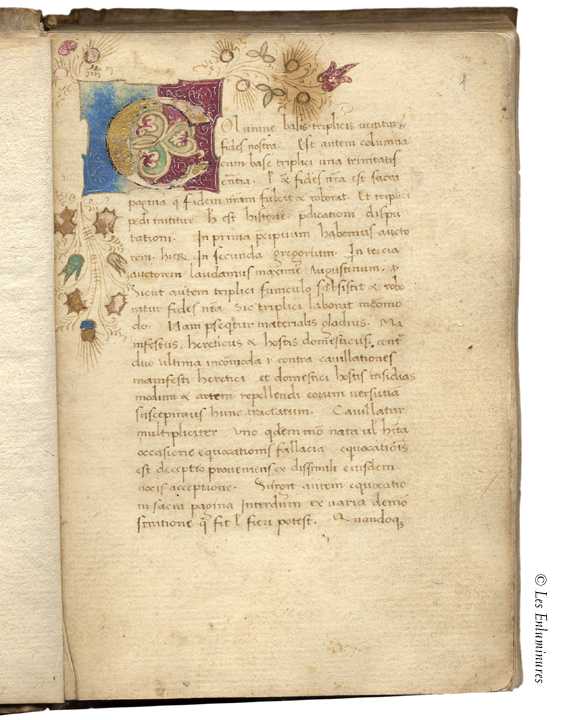 Columne basis triplicis innititur
fides nostra. Est autem columna
cum base triplici una trinitatis
essentia. fides nr̄a est sacra
pagina q̄ fidem nr̄am fulcit & roborat. Et triplici
pedi innititur. hest historie p̱dicationi dispu
tationi. In prima p̱cipuum habemus aucto
rem hier. In secunda gregorium. In tercia
auctorem laudamus maxime Augustinum.
Sicut autem triplici funiculo subsistit & robo
ratur fides nr̄a. sic triplici laborat incōmo
do. Nam p̱seq̄tur materialis gladius. Ma
nifestus, hereticus & hostis domesticus. cont
duo ultima incōmoda contra cavillationes
manifesti heretici et domestici hostis insidias
modum & artem repellendi eorum versutia
suscepimus hunc tractatum. Cavillatur
multipliciter uno q̄dem mō nata ul' hīta
occasione equocationis fallacia equocatiōis
est deceptio proveniens ex dissimili eiusdem
vocis acceptione. Surgit autem equocatio
in sacra pagina interdum ex varia demō
stratione q̄ fit l' fieri potest. Quandoq̄
© Les Enluminures